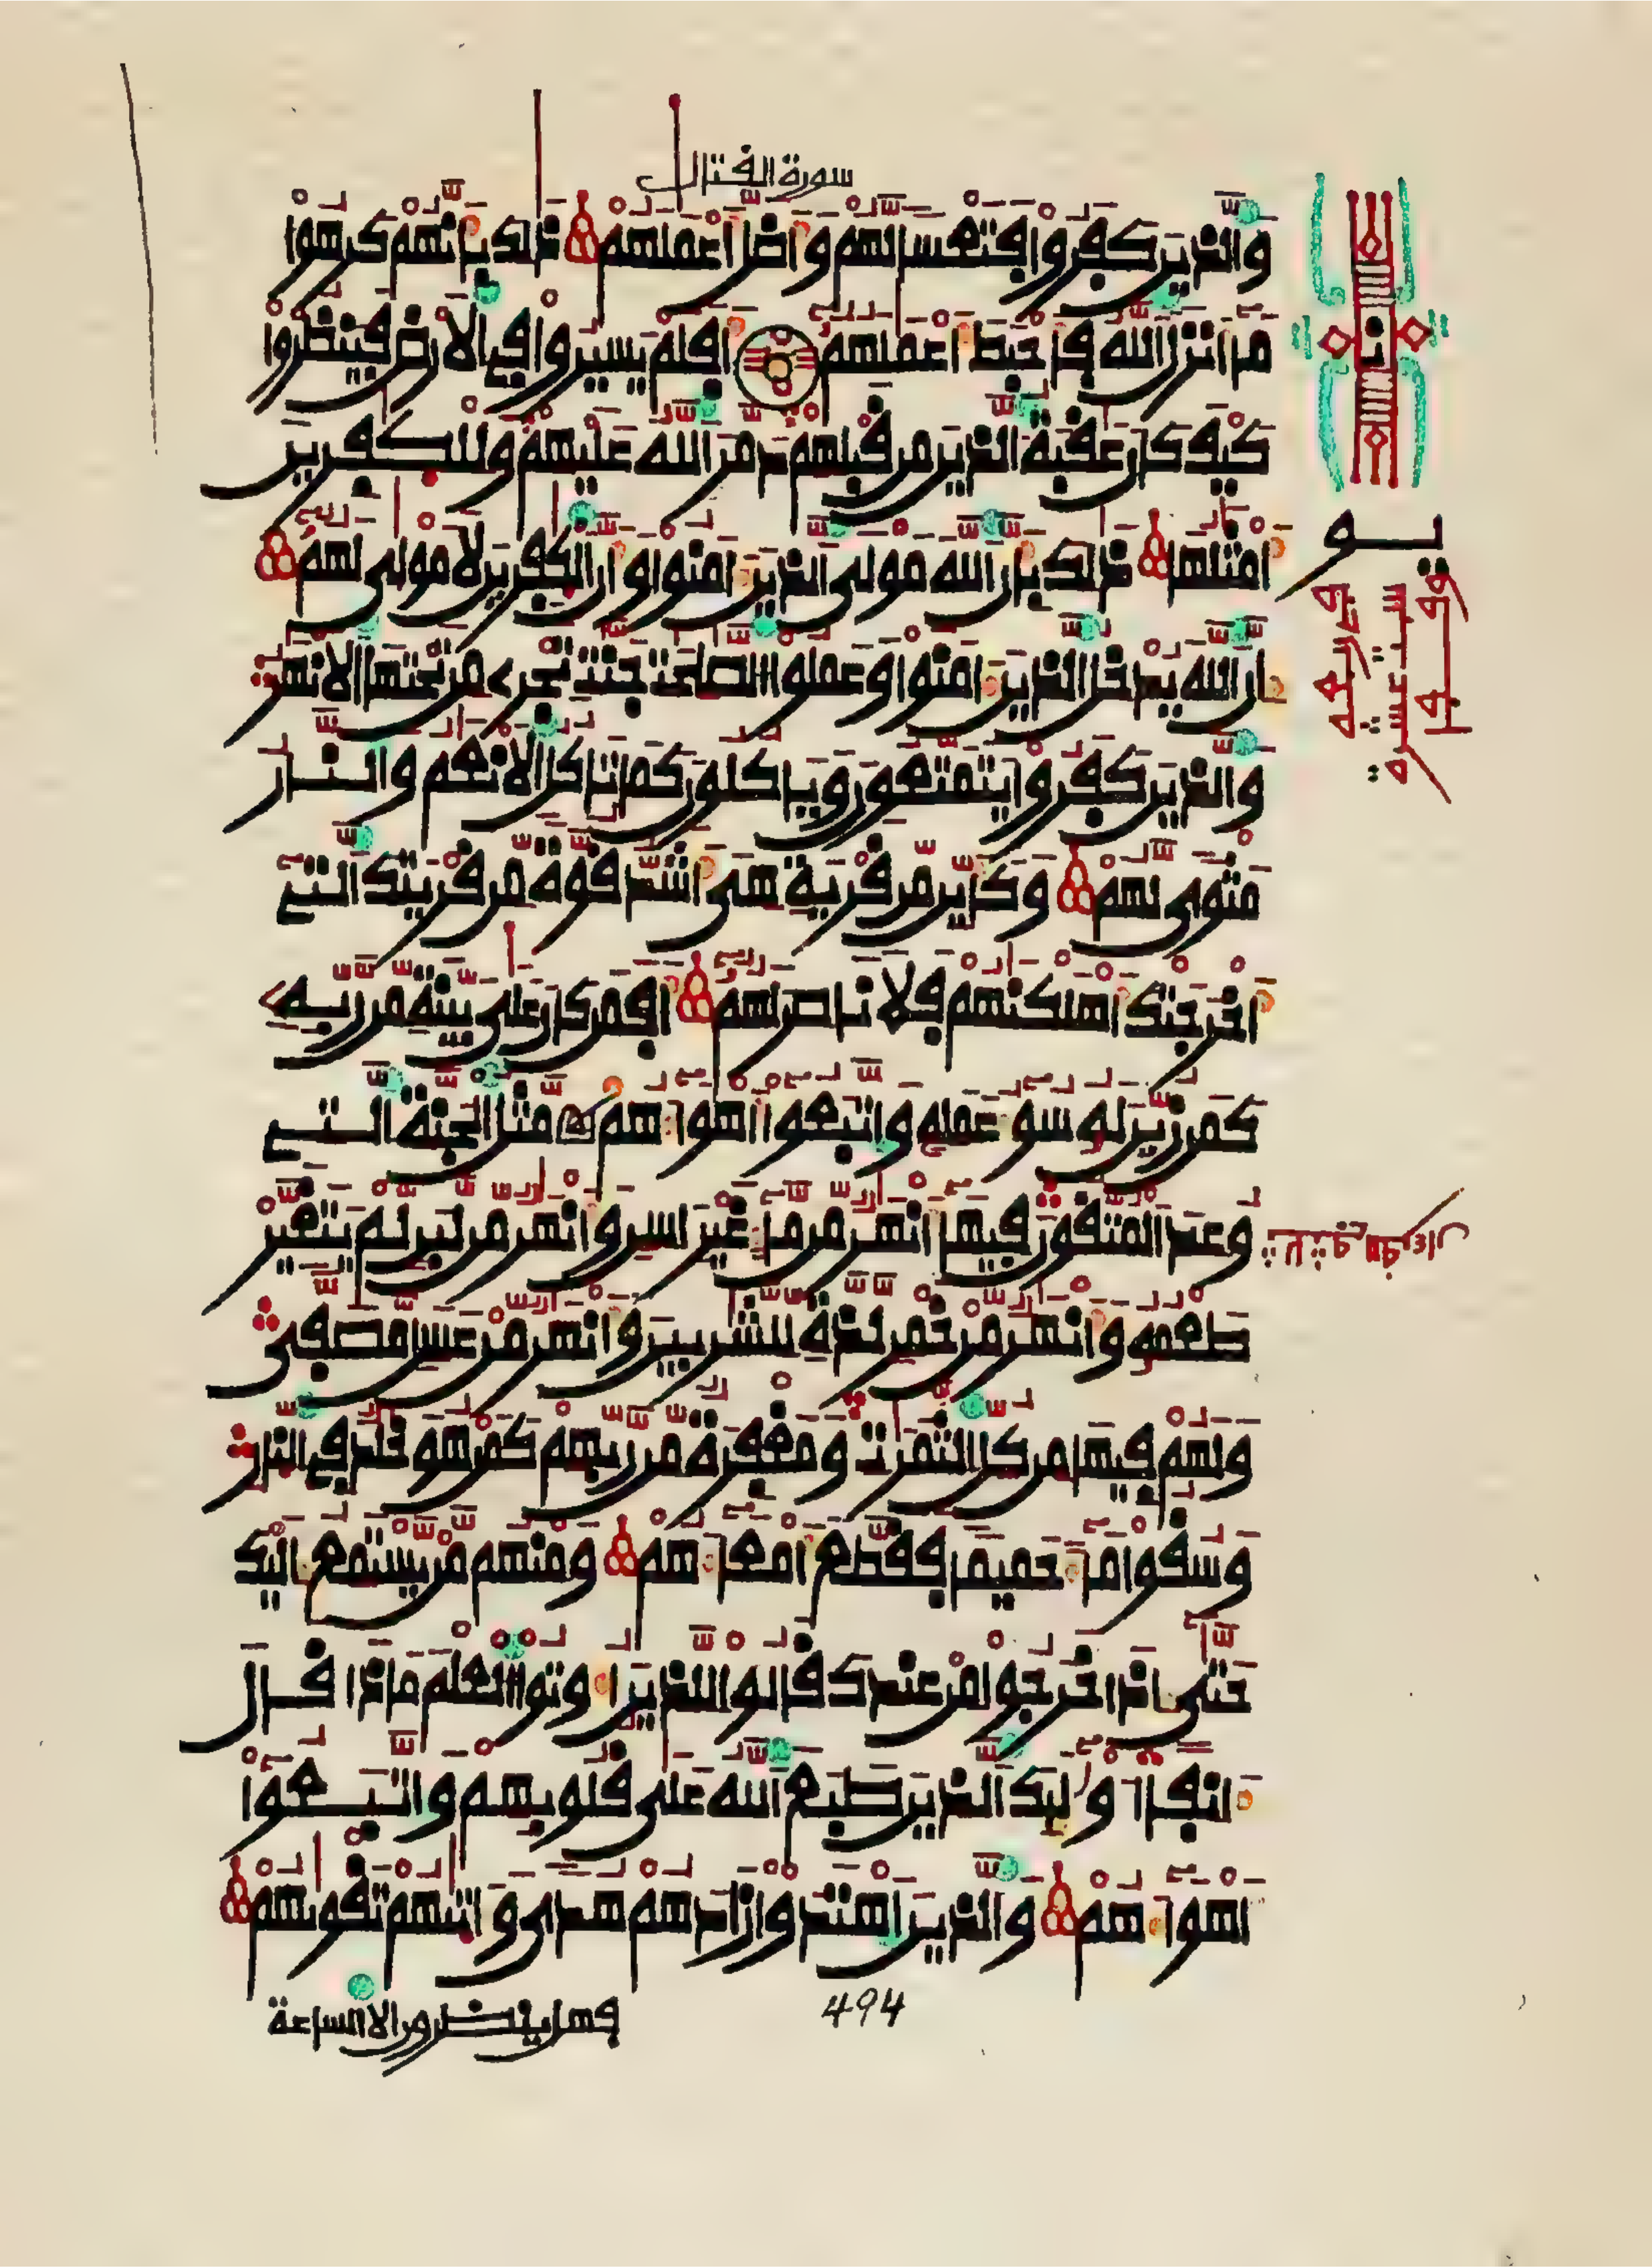 سورة القتال
والذين كفروا فتعسا لهم وأضل أعملهم ذلك بأنهم كرهوا
ما أنزل الله فأحبط أعملهم أفلم يسيروا في الأرض فينظروا
كيف كان عقبة الذين من قبلهم دمر الله عليهم وللكفرين
أمثلها ذلك بأن الله مولى الذين ءامنوا وأن الكفرين لا مولى لهم
إن الله يدخل الذين ءامنوا وعملوا الصلحت جنت تجري من تحتها الأنهر
والذين كفروا يتمتعون ويأكلون كما تأكل الأنعم والنار
مثوى لهم وكأين من قرية هي أشد قوة من قريتك التي
أخرجتك أهلكنهم فلا ناصر لهم أفمن كان على بينة من ربه
كمن زين له سوء عمله واتبعوا أهواءهم مثل الجنة التي
وعد المتقون فيها أنهر من ماء غير ءاسن وأنهر من لبن لم يتغير
طعمه وأنهر من خمر لذة للشربين وأنهر من عسل مصفى
ولهم فيها من كل الثمرت ومغفرة من ربهم كمن هو خلد في النار
وسقوا ماء حميما فقطع أمعاءهم ومنهم من يستمع إليك
حتى إذا خرجوا من عندك قالوا للذين أوتوا العلم ماذا قال
ءانفا أولئك الذين طبع الله على قلوبهم واتبعوا
أهواءهم والذين اهتدوا زادهم هدى وءاتيهم تقويهم
فهل ينظرون إلا الساعة
494